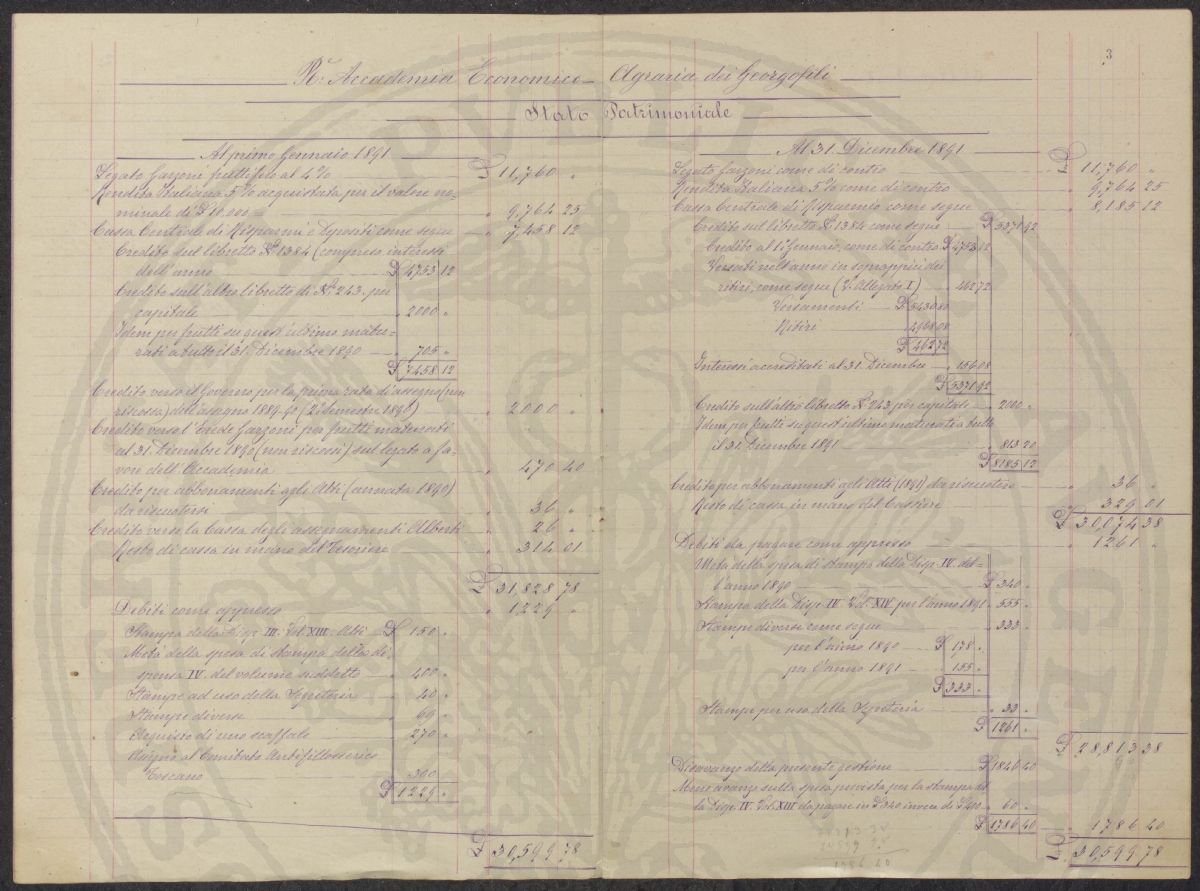 3
Rª Accademia Economico-Agraria dei Georgofili
Stato Patrimoniale
Al primo Gennaio 1891
Legato Garzoni fruttifero al 4% £ 11,760 "
Rendita Italiana 5% acquistata per il valore no-
minale di £ 10.000= " 9,764 25
Cassa Centrale di Risparmi e Depositi come segue " 7,458 12
Credito sul libretto Nº 1384 (compreso interessi
dell'anno £ 4753 12
Credito sull'altro libretto di Nº 243. per
capitale " 2000 "
Idem per frutti su quest'ultimo matu-
rati a tutto il 31. Dicembre 1890 " 705 "
£ 7458 12
Credito verso il Governo per la prima rata di assegno (non
riscossa) dell'assegno 1889-90 (2º semestre 1890) " 2000 "
Credito verso l'Erede Garzoni per frutti maturati
al 31. Dicembre 1890 (non riscossi) sul legato a fa-
vore dell'Accademia " 470 40
Credito per abbonamenti agli Atti (annata 1890)
da riscuotersi " 36 "
Credito verso la Cassa degli assegnamenti Alberti " 26 "
Resto di cassa in mano del Tesoriere " 314 01
£ 31,828 78
Debiti come appresso " 1229 "
Stampa della Disp. III. Vol. XIII. Atti £ 150 "
Metà della spesa di stampa della di-
spensa IV. del volume suddetto " 400 "
Stampe ad uso della Segreteria " 40 "
Stampe diverse " 69 "
Acquisto di uno scaffale " 270 "
Assegno al Comitato Antifillosserico
Toscano " 300 "
£ 1229 "
£ 30,599 78
Al 31. Dicembre 1891
Legato Garzoni come di contro £ 11,760 "
Rendita Italiana 5% come di contro " 9,764 25
Cassa Centrale di Risparmio come segue " 8,185 12
Credito sul libretto Nº 1384 come segue £ 5371 92
Credito al 1º Gennaio, come di contro £ 4753 12
Versati nell'anno in soprappiù dei
ritiri, come segue (V. Allegato I) " 462 72
Versamenti £ 5430 80
Ritiri " 4968 08
£ 462 72
Interessi accreditati al 31. Dicembre " 156 08
£ 5371 92
Credito sull'altro libretto Nº 243 per capitale " 2000 "
Idem per frutti su quest'ultimo maturati a tutto
il 31. Dicembre 1891 " 813 20
£ 8185 12
Credito per abbonamenti agli Atti (1891) da riscuotere " 36 "
Resto di cassa in mano del Cassiere " 329 01
£ 30,074 38
Debiti da pagare come appresso " 1261 "
Metà della spesa di stampa della Disp. IV. del-
l'anno 1890 £ 340 "
Stampa della Disp. IV. Vol. XIV per l'anno 1891 " 555 "
Stampe diverse come segue " 333 "
per l'anno 1890 £ 178 "
per l'anno 1891 " 155 "
£ 333 "
Stampe per uso della Segreteria " 33 "
£ 1261 "
£ 28,813 38
Disavanzo della presente gestione £ 1846 40
Meno avanzo sulla spesa prevista per la stampa del-
la Disp. IV. Vol. XIII da pagare in £ 340 invece di £ 400 " 60 "
£ 1786 40
1786 40
£ 30,599 78